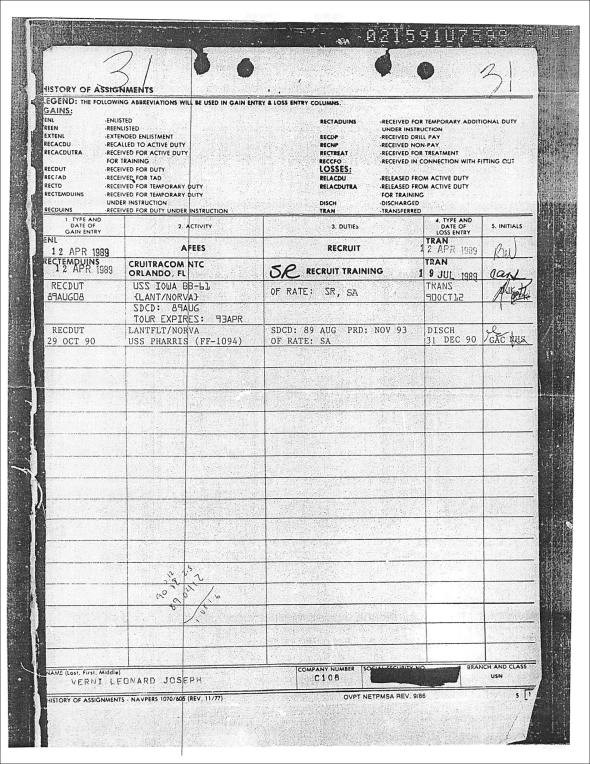 02159107599
31
31
HISTORY OF ASSIGNMENTS
LEGEND: THE FOLLOWING ABBREVIATIONS WILL BE USED IN GAIN ENTRY & LOSS ENTRY COLUMNS.
GAINS:
ENL -ENLISTED
REEN -REENLISTED
EXTENL -EXTENDED ENLISTMENT
RECACDU -RECALLED TO ACTIVE DUTY
RECACDUTRA -RECEIVED FOR ACTIVE DUTY
FOR TRAINING
RECDUT -RECEIVED FOR DUTY
RECTAD -RECEIVED FOR TAD
RECTD -RECEIVED FOR TEMPORARY DUTY
RECTEMDUINS -RECEIVED FOR TEMPORARY DUTY
UNDER INSTRUCTION
RECDUINS -RECEIVED FOR DUTY UNDER INSTRUCTION
RECTADUINS -RECEIVED FOR TEMPORARY ADDITIONAL DUTY
UNDER INSTRUCTION
RECDP -RECEIVED DRILL PAY
RECNP -RECEIVED NON-PAY
RECTREAT -RECEIVED FOR TREATMENT
RECCFO -RECEIVED IN CONNECTION WITH FITTING OUT
LOSSES:
RELACDU -RELEASED FROM ACTIVE DUTY
RELACDUTRA -RELEASED FROM ACTIVE DUTY
FOR TRAINING
DISCH -DISCHARGED
TRAN -TRANSFERRED
1. TYPE AND DATE OF GAIN ENTRY
2. ACTIVITY
3. DUTIES
4. TYPE AND DATE OF LOSS ENTRY
5. INITIALS
ENL
12 APR 1989 AFEES RECRUIT TRAN 12 APR 1989
RECTEMDUINS
12 APR 1989
CRUITRACOM NTC
ORLANDO, FL
SR RECRUIT TRAINING
TRAN
19 JUL 1989
RECDUT
89AUG08
USS IOWA BB-61
(LANT/NORVA)
SDCD: 89AUG
TOUR EXPIRES: 93APR
OF RATE: SR, SA
TRANS
90OCT12
RECDUT
29 OCT 90
LANTFLT/NORVA
USS PHARRIS (FF-1094)
SDCD: 89 AUG PRD: NOV 93
OF RATE: SA
DISCH
31 DEC 90
GAC
NAME (Last, First, Middle)
VERNI LEONARD JOSEPH
COMPANY NUMBER
C108
SOCIAL SECURITY NO.
BRANCH AND CLASS
USN
HISTORY OF ASSIGNMENTS - NAVPERS 1070/605 (REV. 11/77)
OVPT NETPMSA REV. 9/86
5 1